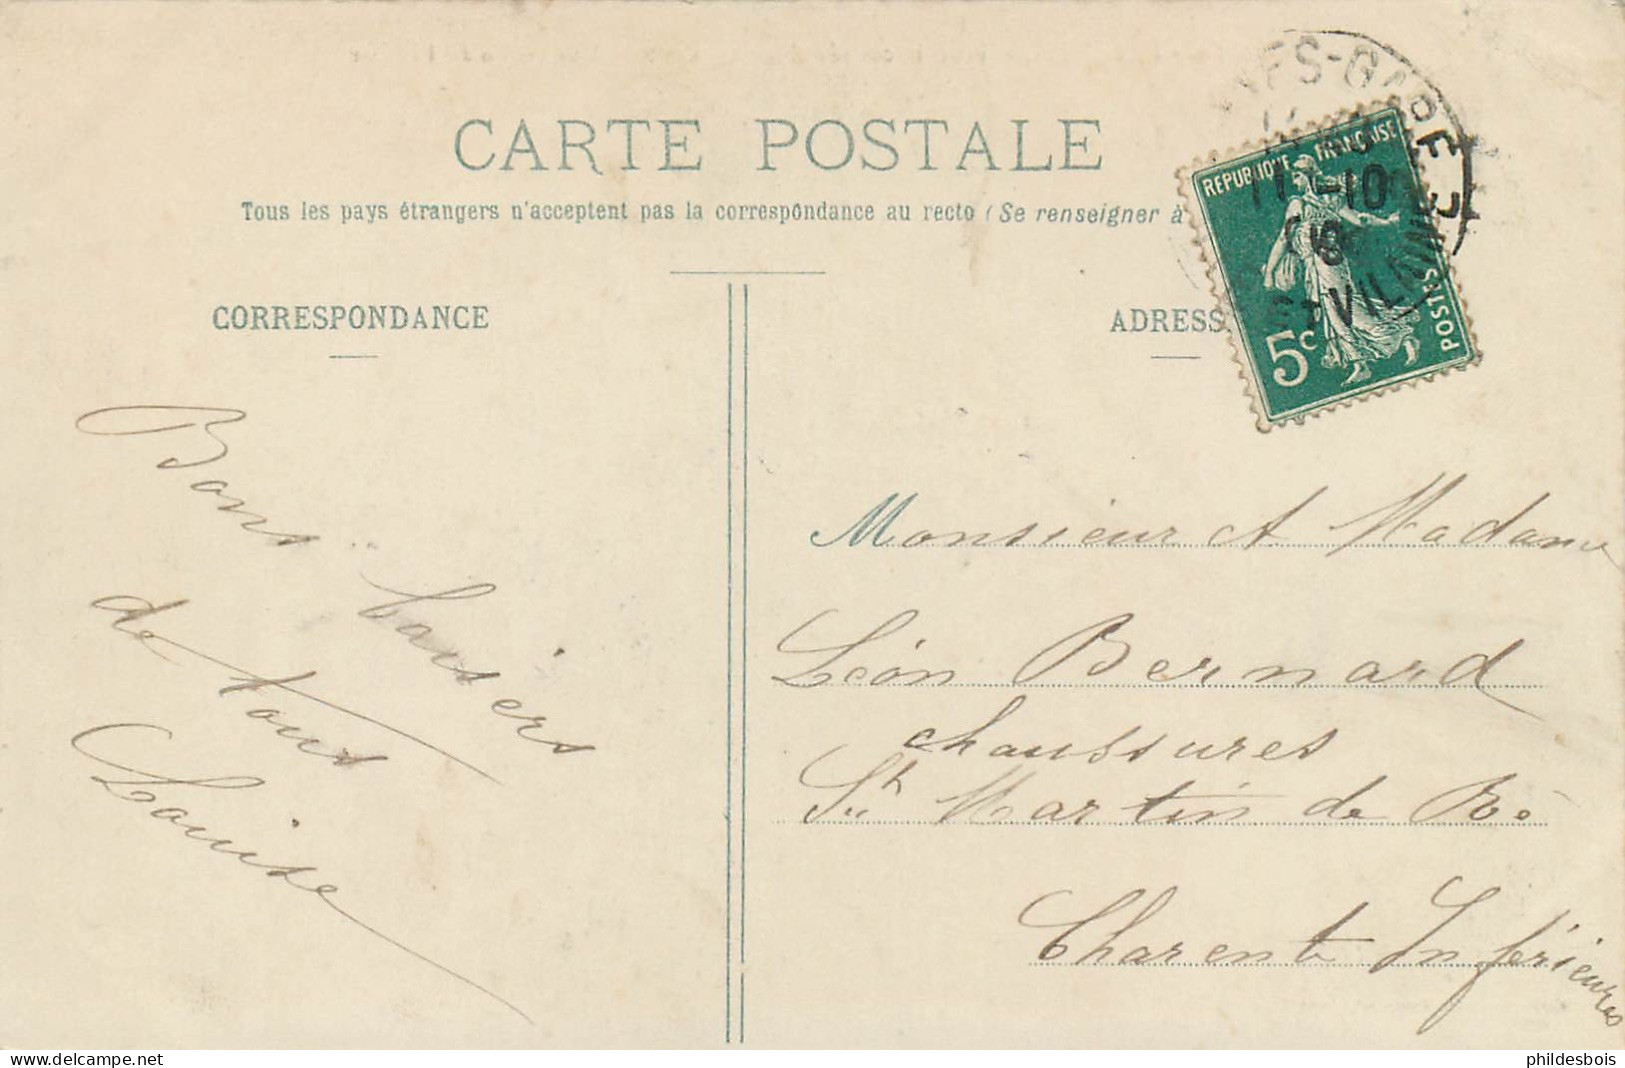 CARTE POSTALE
Tous les pays étrangers n'acceptent pas la correspondance au recto (Se renseigner à
CORRESPONDANCE
ADRESS
REPUBLIQUE FRANÇAISE
POSTES
5c
GARE
11 -10
ET VILAINE
Bons baisers
de tous
Louise
Monsieur et Madame
Léon Bernard
chaussures
St Martin de Ré
Charente Inférieure
delcampe.net
phildesbois